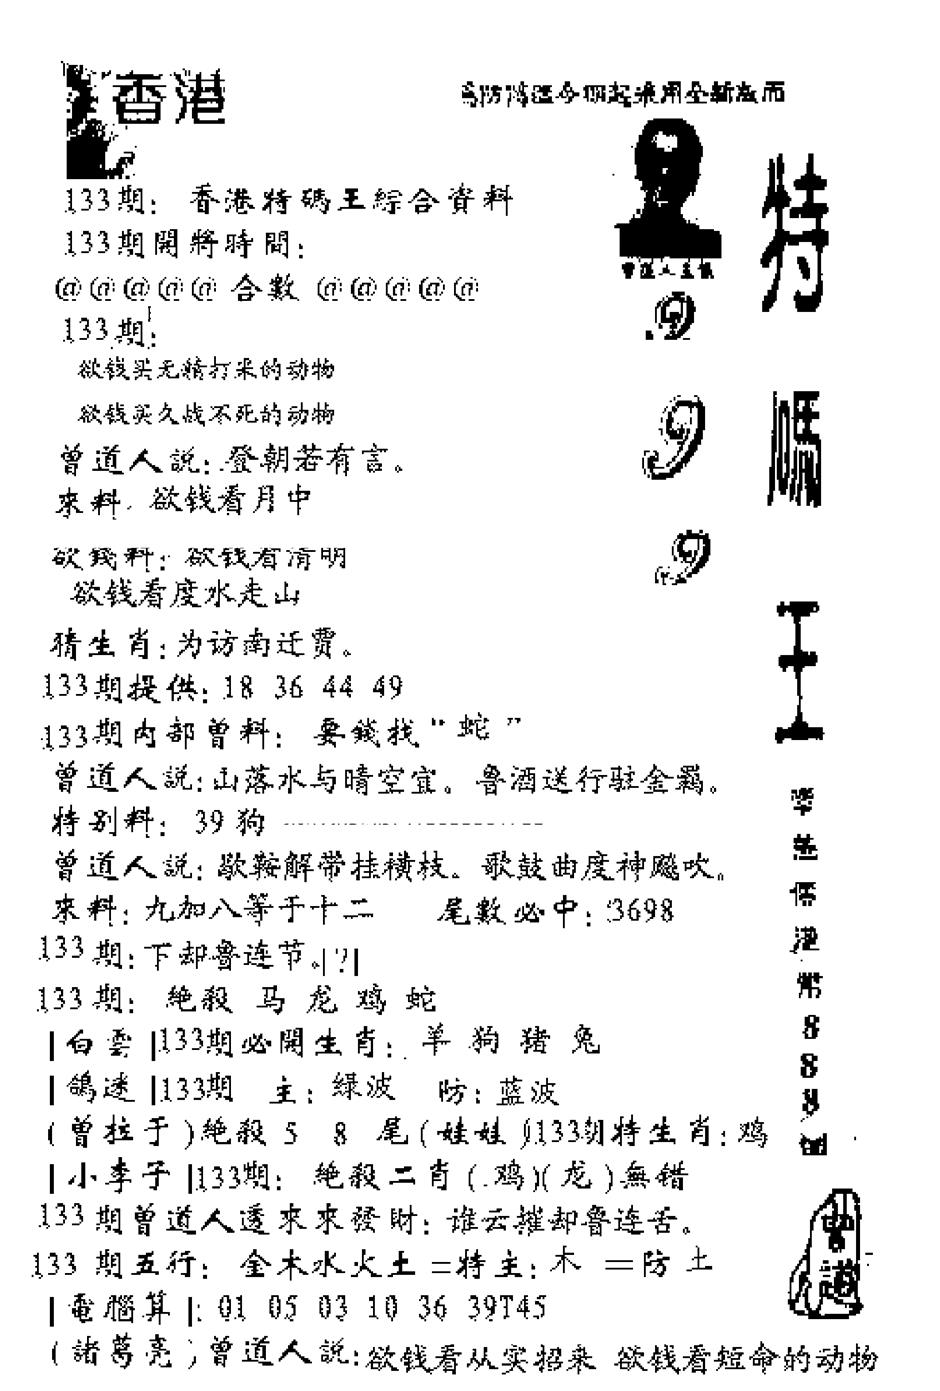 香港
133期: 香港特碼王綜合資料
133期開將時間:
@@@@@ 合數 @@@@@
133期:
欲钱买无精打采的动物
欲钱买久战不死的动物
曾道人説:登朝若有言。
來料: 欲钱看月中
欲錢料: 欲钱看清明
欲钱看度水走山
猜生肖:为访南迁贾。
133期提供: 18 36 44 49
133期内部曾料: 要錢找"蛇"
曾道人説:山落水与晴空宜。鲁酒送行驻金羁。
特别料: 39狗
曾道人説:歇鞍解带挂横枝。歌鼓曲度神飚吹。
來料:九加八等于十二 尾數必中:3698
133期:下却鲁连节。|?|
133期: 絶殺 马 龙 鸡 蛇
|白雲|133期必開生肖: 羊 狗 猪 兔
|鴿迷|133期 主: 绿波 防: 蓝波
(曾拉于)絶殺 5 8 尾(娃娃)133期特生肖:鸡
|小李子|133期: 絶殺二肖(鸡)(龙)無错
133期曾道人透來來發財:谁云摧却鲁连舌。
133期五行: 金木水火土=特主:木 =防 土
|電腦算|: 01 05 03 10 36 39T45
(諸葛亮)曾道人説:欲钱看从实招来 欲钱看短命的动物
特
碼
王
9
9
9
港
幣
8
8
8
曾
道